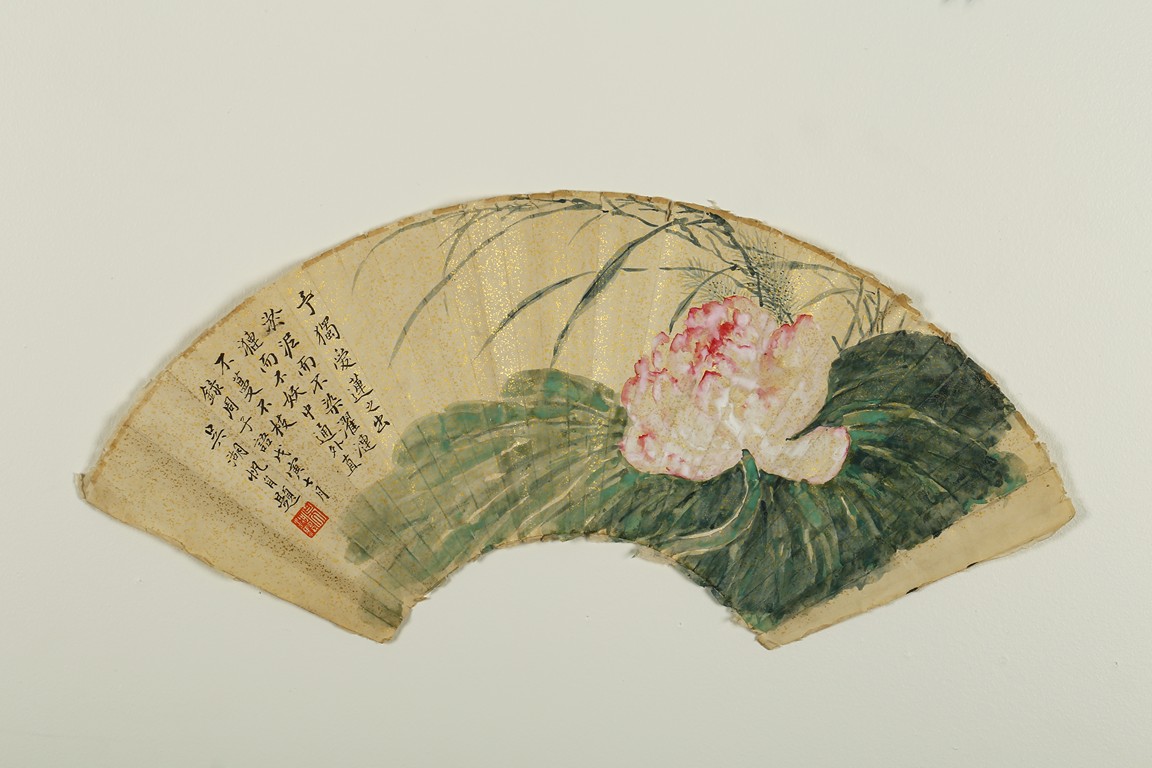 予獨愛蓮之出
淤泥而不染濯漣
漪而不妖中通外直
不蔓不枝
錄周子語戊寅七月
吳湖帆自題